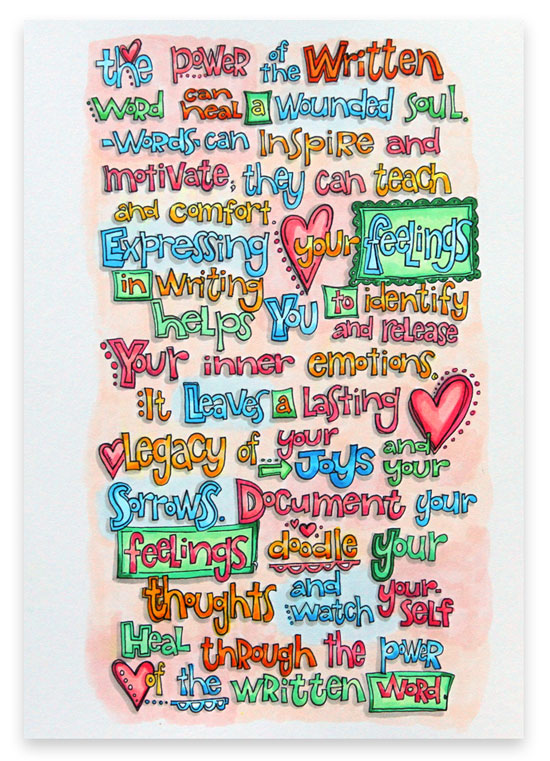 the power of the Written
Word can heal a Wounded soul.
-Words can Inspire and
motivate, they can teach
and comfort.
Expressing your feelings
in writing
helps You to identify
and release
Your inner emotions.
It Leaves a Lasting
Legacy of your Joys and your
Sorrows. Document your
feelings, doodle your
thoughts and watch your-self
Heal through the power
of the written word.